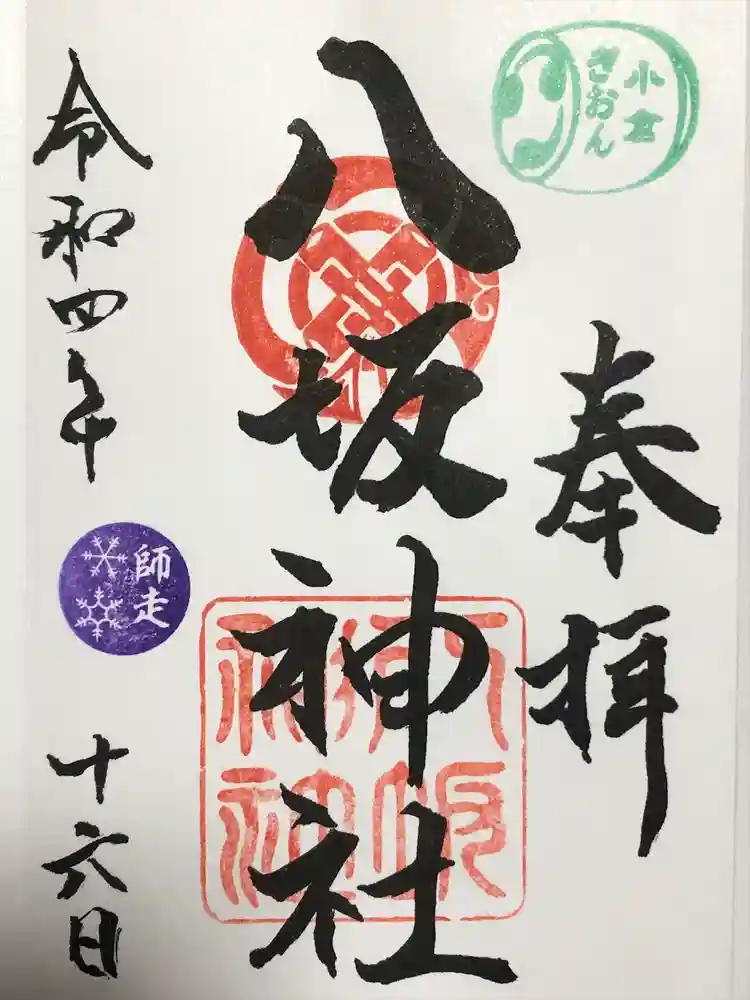 小倉
ぎおん
奉拝
八坂神社
令和四年
師走
十六日